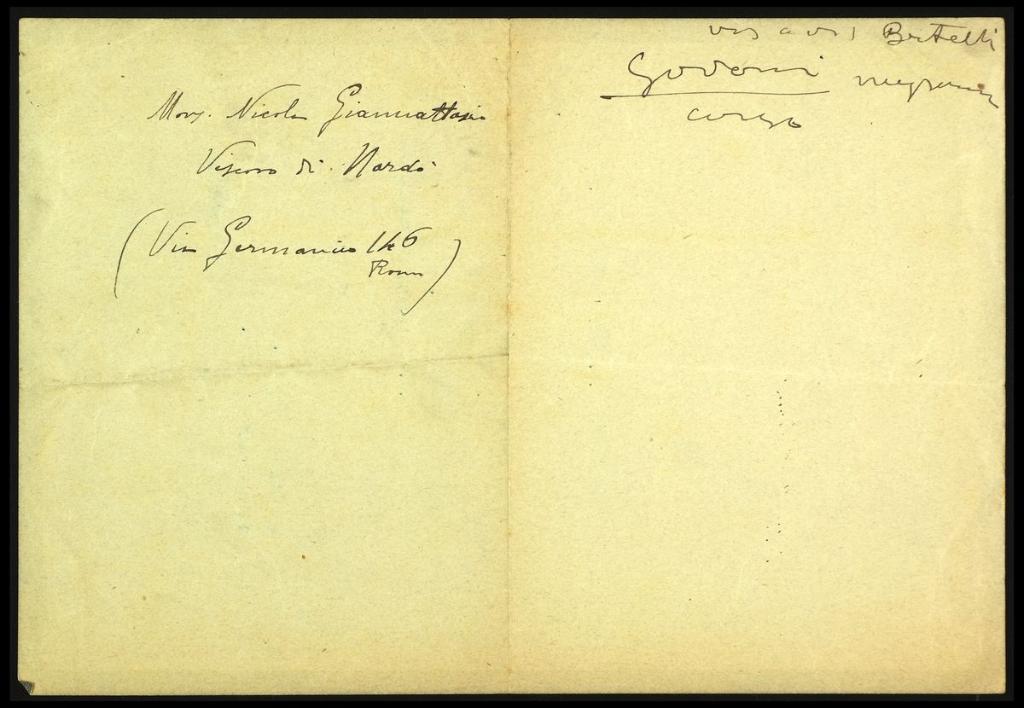 Mons. Nicola Giannattasio
Vescovo di Nardò
(Via Germanico 146
Roma)
vis a vis Bertelli
Godoni
corso